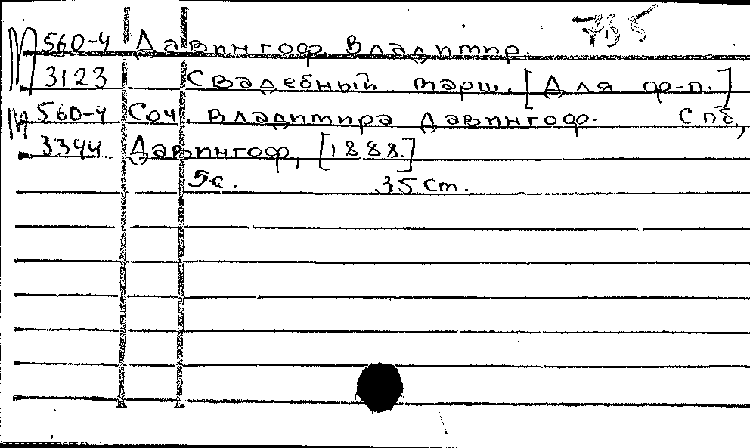 М 560-4 Давингоф, Владимир.
3123 Свадебный марш. [Для ф-п.]
М 560-4 Соч. Владимира Давингоф. Спб,
3344 Давингоф, [1888.]
5с. 35 см.